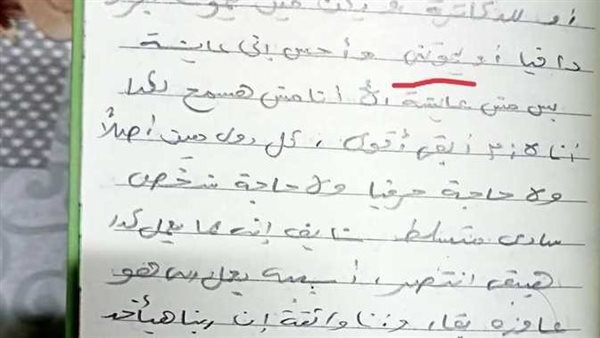 دافيا أو يموتني وأحس إني عايشة
بس مش عايشة لأ أنا مش هسمح بكدا
أنا لازم أبقى أقوى، كل دول مين أصلاً
ولا حاجة حرفيا ولا حاجة شخص
سادي متسلط شايف إنه لما يعمل كدا
هيبقى انتصر، أسيبه يعمل هو
عاوزه بقا، وأنا واثقة إن ربنا هيأخد